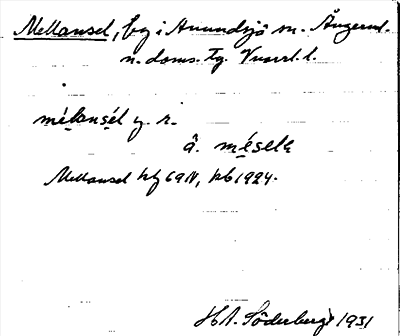 Mellansel, by i Anundsjö sn. Ångerml.
n. doms. Tg. Vnorrl. l.
mèlansél y. r.
â. mésele
Mellansel hfg 69 IV, kb 1924.
H. Söderberg 1931